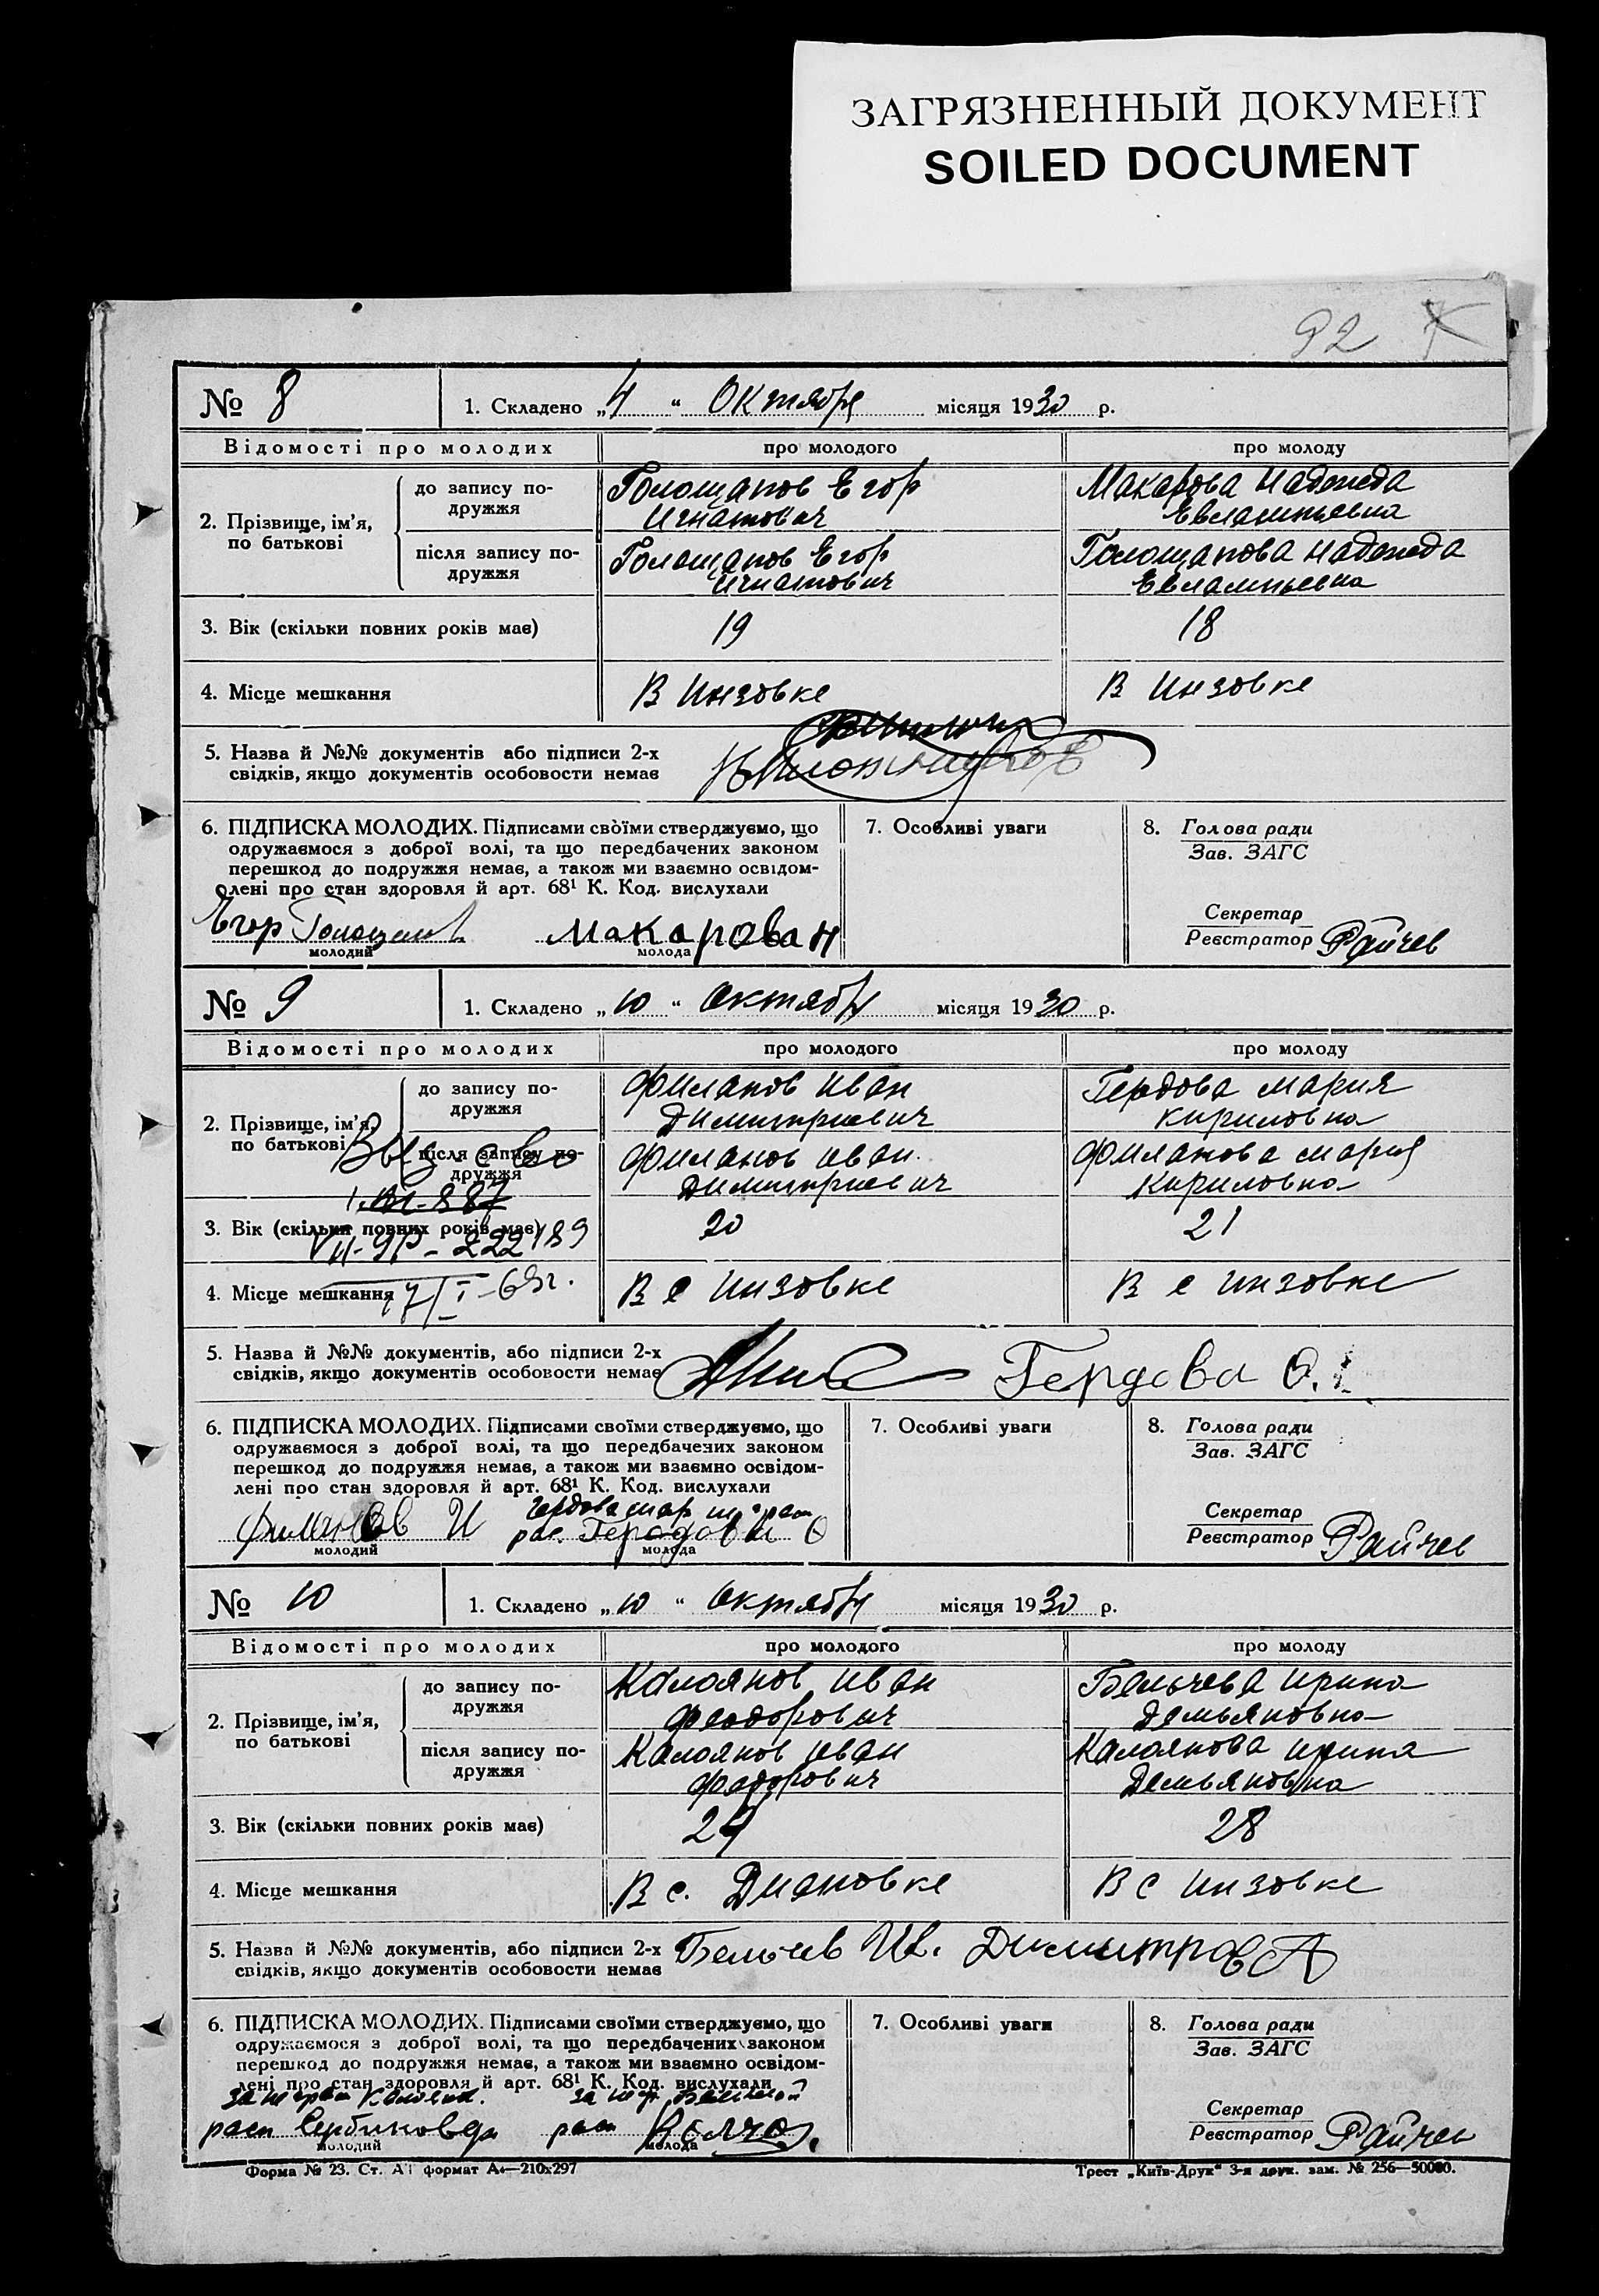 ЗАГРЯЗНЕННЫЙ ДОКУМЕНТ
SOILED DOCUMENT
92
№ 8 1. Складено „4" Октября місяця 1930 р.
Відомості про молодих про молодого про молоду
2. Прізвище, ім'я, по батькові
до запису подружжя
Голощапов Егор
Игнатович
Макарова Надежда
Евлампьевна
після запису подружжя
Голощапов Егор
Игнатович
Голощапова Надежда
Евлампьевна
3. Вік (скільки повних років має) 19 18
4. Місце мешкання В Инзовке В Инзовке
5. Назва й №№ документів або підписи 2-х
свідків, якщо документів особовости немає
6. ПІДПИСКА МОЛОДИХ. Підписами своїми стверджуємо, що
одружаємося з доброї волі, та що передбачених законом
перешкод до подружжя немає, а також ми взаємно освідом-
лені про стан здоровля й арт. 68¹ К. Код. вислухали
Егор Голощапов Макарова Н
молодий молода
7. Особливі уваги
8. Голова ради
Зав. ЗАГС
Секретар
Реєстратор Райчев
№ 9 1. Складено „10" Октября місяця 1930 р.
Відомості про молодих про молодого про молоду
2. Прізвище, ім'я, по батькові
до запису подружжя
Филапов Иван
Димитриевич
Гердова Мария
Кириловна
після запису подружжя
Филанов Иван
Димитриевич
Филанова Мария
Кириловна
3. Вік (скільки повних років має) 20 21
4. Місце мешкання 17/I-69г. В с Инзовке В с Инзовке
5. Назва й №№ документів, або підписи 2-х
свідків, якщо документів особовости немає
Гердова О.
6. ПІДПИСКА МОЛОДИХ. Підписами своїми стверджуємо, що
одружаємося з доброї волі, та що передбачених законом
перешкод до подружжя немає, а також ми взаємно освідом-
лені про стан здоровля й арт. 68¹ К. Код. вислухали
Филанов И рас. Гердова О
молодий молода
7. Особливі уваги
8. Голова ради
Зав. ЗАГС
Секретар
Реєстратор Райчев
№ 10 1. Складено „10" Октября місяця 1930 р.
Відомості про молодих про молодого про молоду
2. Прізвище, ім'я, по батькові
до запису подружжя
Калоянов Иван
Феодорович
Бельчева Ирина
Демьяновна
після запису подружжя
Калоянов Иван
Федорович
Калоянова Ирина
Демьяновна
3. Вік (скільки повних років має) 24 28
4. Місце мешкання В с. Диановке В с Инзовке
5. Назва й №№ документів, або підписи 2-х
свідків, якщо документів особовости немає
Бельчев Ив. Димитров А
6. ПІДПИСКА МОЛОДИХ. Підписами своїми стверджуємо, що
одружаємося з доброї волі, та що передбачених законом
перешкод до подружжя немає, а також ми взаємно освідом-
лені про стан здоровля й арт. 68¹ К. Код. вислухали
молодий молода
7. Особливі уваги
8. Голова ради
Зав. ЗАГС
Секретар
Реєстратор Райчев
Форма № 23. Ст. А1 формат А4—210x297 Трест „Київ-Друк" 3-я друк. зам. № 256—50000.